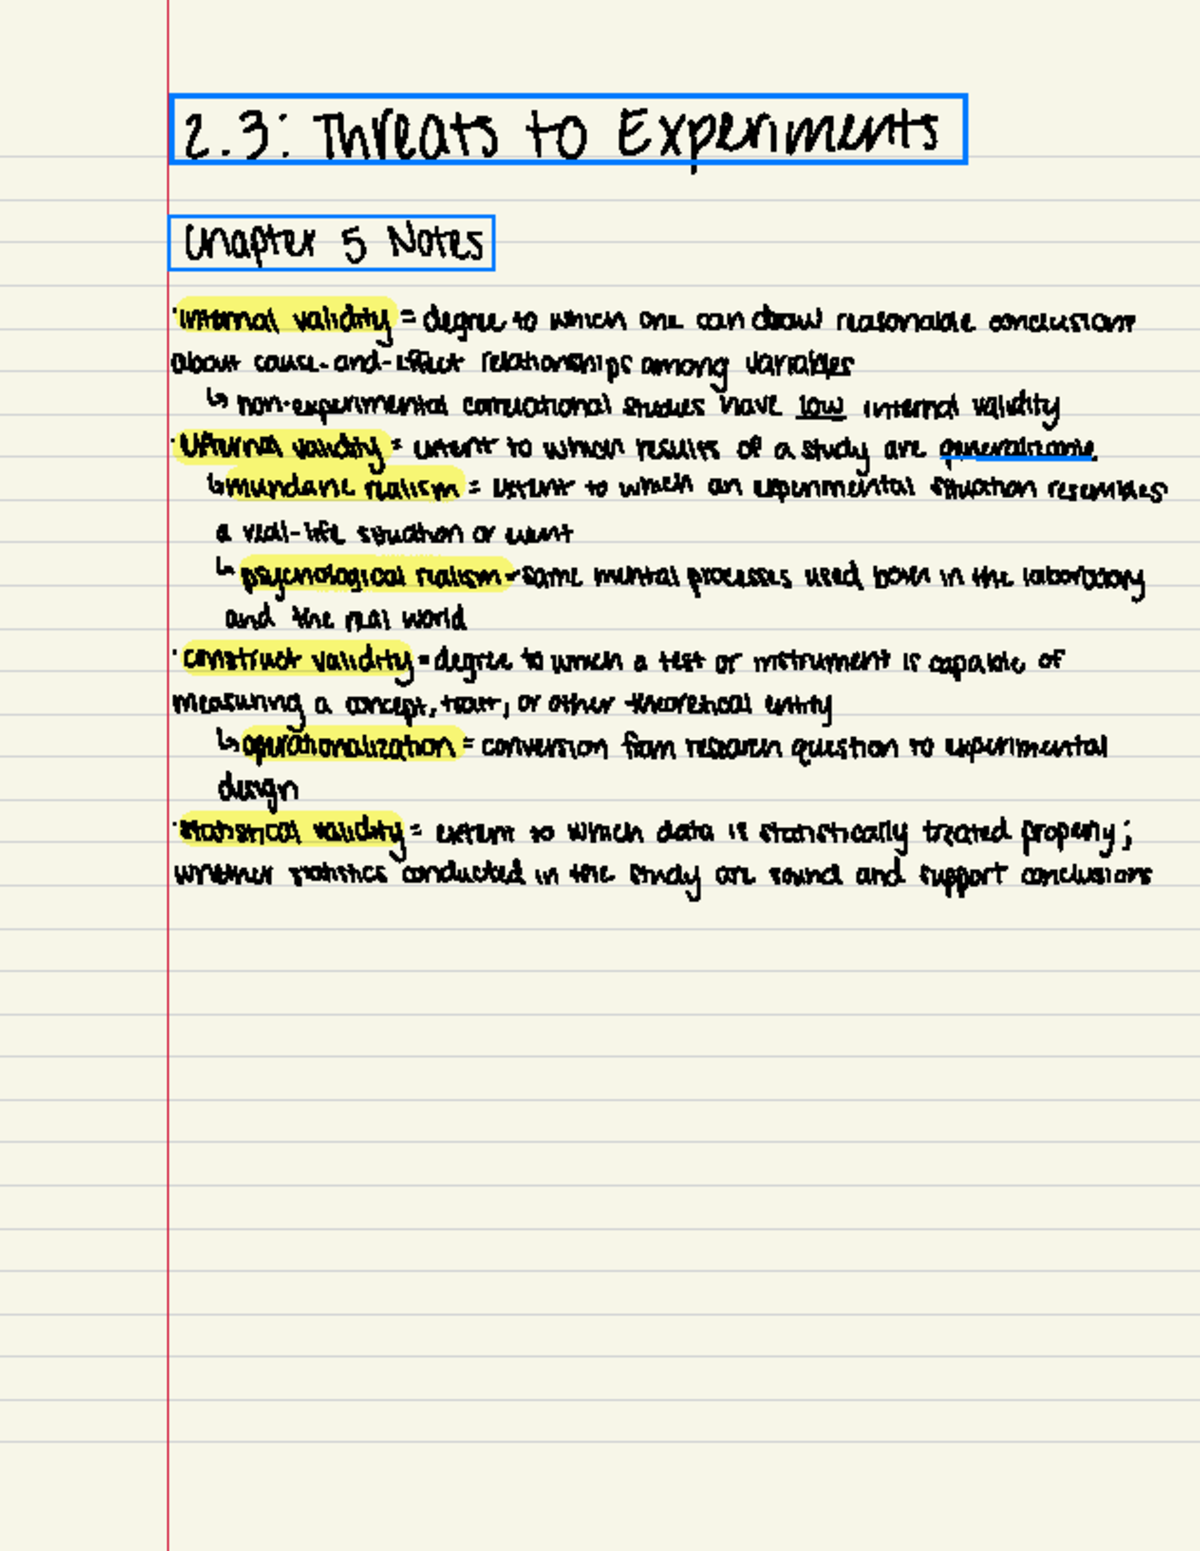 2.3: Threats to Experiments
Chapter 5 Notes
·internal validity = degree to which one can draw reasonable conclusions
about cause-and-effect relationships among variables
↳ non-experimental correlational studies have low internal validity
·External validity = extent to which results of a study are generalizable
↳mundane realism = extent to which an experimental situation resembles
a real-life situation or event
↳ psychological realism-same mental processes used both in the laboratory
and the real world
·construct validity = degree to which a test or instrument is capable of
measuring a concept, trait, or other theoretical entity
↳operationalization = conversion from research question to experimental
design
·statistical validity = extent to which data is statistically treated properly;
whether statistics conducted in the study are sound and support conclusions